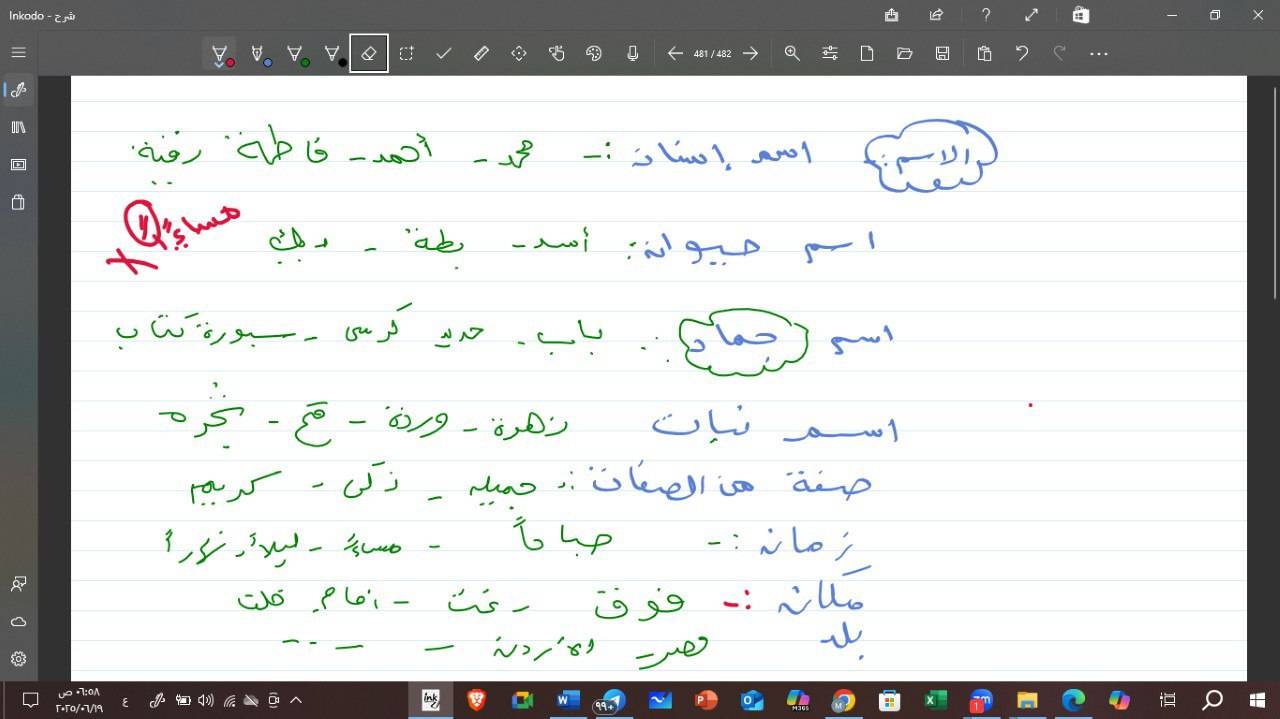 Inkodo - شرح
481 / 482
الاسم: اسم إنسان :- محمد - أحمد - فاطمة رقية
مساءً
اسم حيوان: أسد - بطة - ديك
اسم جماد :. باب - حديد كرسى - سبورة كتاب
اسم نبات زهرة - وردة - قمح - شجره
صفة من الصفات :. جميله - ذكى - كريم
زمان :- صباحاً - مساءً - ليلاً - نهاراً
مكان :- فوق - تحت - أمام خلف
بلد مصر الأردن - - ...
٠٦:٥٨ ص
٢٠٢٥/٠٦/١٩
ع
٩٩+
M365
M
zm
1
ink